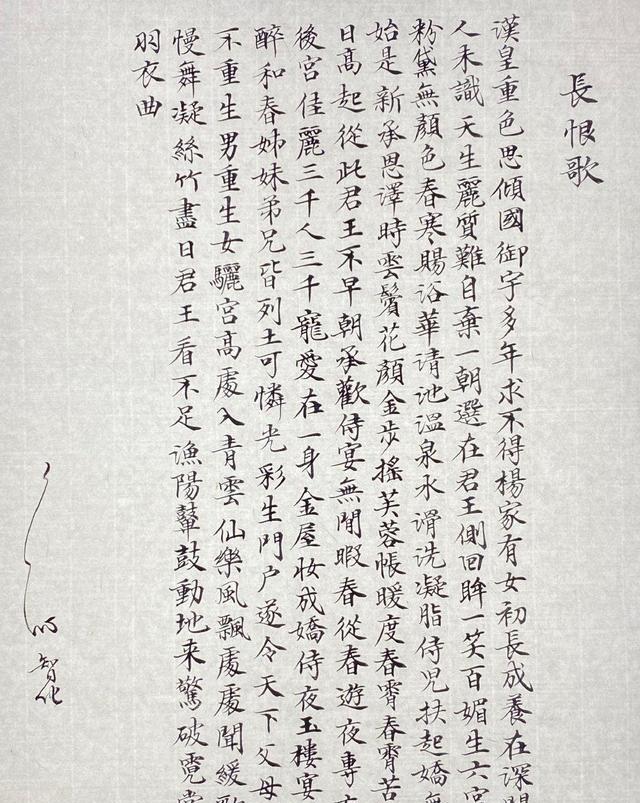 長恨歌
漢皇重色思傾國御宇多年求不得楊家有女初長成養在深閨
人未識天生麗質難自棄一朝選在君王側回眸一笑百媚生六宮
粉黛無顏色春寒賜浴華清池溫泉水滑洗凝脂侍児扶起嬌無
始是新承恩澤時雲鬢花顏金步搖芙蓉帳暖度春宵春宵苦
日高起從此君王不早朝承歡侍宴無閒暇春從春遊夜專夜
後宮佳麗三千人三千寵愛在一身金屋妝成嬌侍夜玉樓宴
醉和春姊妹弟兄皆列土可憐光彩生門户遂令天下父母
不重生男重生女驪宮高處入青雲仙樂風飄處處聞緩歌
慢舞凝絲竹盡日君王看不足漁陽鼙鼓動地来驚破霓裳
羽衣曲
智化